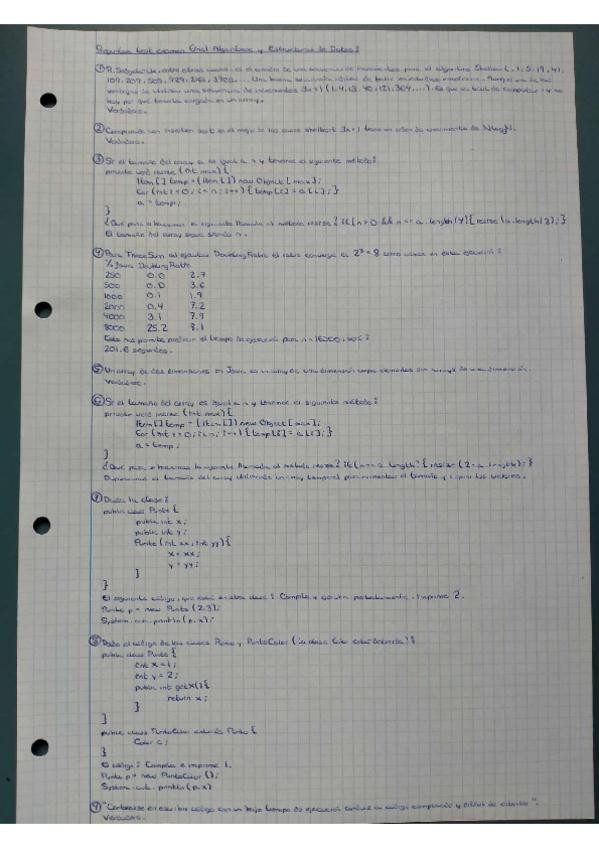 Preguntas test examen final Algoritmos y Estructuras de Datos:
① R. Sedgewick, entre otros usaron, es el creador de una secuencia de incrementos para el algoritmo Shellsort, 1, 5, 19, 41,
109, 209, 505, 929, 2161, 3905, ...
utiliza una secuencia de incrementos 3x+1 (1, 4, 13, 40, 121, 364, ...). Es que es fácil de computar y no
hay que tenerla cargada en un array.
Verdadero.
② Comparando con insertion sort en el mejor de los casos shellsort 3x+1 tiene un orden de crecimiento de NlogN.
Verdadero.
③ Si el tamaño del array a es igual a n y tenemos el siguiente método:
private void resize (int max) {
Item [] temp = (Item []) new Object [max];
for (int i = 0; i < n; i++) { temp[i] = a[i]; }
a = temp;
}
¿Qué pasa si hacemos la siguiente llamada al método resize? if (n > 0 && n == a.length/4) { resize (a.length/2); }
El tamaño del array sigue siendo n.
④ Para ThreeSum al ejecutar DoublingRatio el ratio converge a 2³ = 8 como vemos en esta ejecución:
% Java DoublingRatio
250 0.0 2.7
500 0.0 3.6
1000 0.1 1.9
2000 0.4 7.2
4000 3.1 7.9
8000 25.2 8.1
Esto nos permite predecir el tiempo de ejecución para n = 16000, ¿es?
201.6 segundos.
⑤ Un array de dos dimensiones en Java, es un array de una dimensión cuyos elementos son arrays de una dimensión.
Verdadero.
⑥ Si el tamaño del array es igual a n y tenemos el siguiente método:
private void resize (int max) {
Item [] temp = (Item []) new Object [max];
for (int i = 0; i < n; i++) { temp[i] = a[i]; }
a = temp;
}
¿Qué pasa si hacemos la siguiente llamada al método resize? if (n == a.length) { resize (2 * a.length); }
Duplicamos el tamaño del array utilizando un array temporal para aumentar el tamaño y copiar los valores.
⑦ Dada la clase:
public class Punto {
public int x;
public int y;
Punto (int xx, int yy) {
x = xx;
y = yy;
}
}
El siguiente código, que está en otra clase: Compila y ejecuta perfectamente. Imprime 2.
Punto p = new Punto (2,3);
System.out.println (p.x);
⑧ Dado el código de las clases Punto y PuntoColor (la clase Color está definida):
public class Punto {
int x = 1;
int y = 2;
public int getX() {
return x;
}
}
public class PuntoColor extends Punto {
Color c;
}
El código: Compila e imprime 1.
Punto p = new PuntoColor ();
System.out.println (p.x)
⑨ "Centrarse en escribir código con un bajo tiempo de ejecución conlleva un código complicado y difícil de entender".
Verdadero.